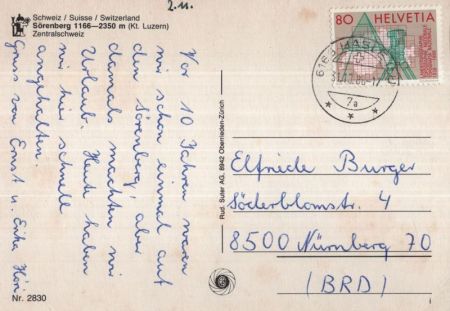 2.11.
Schweiz / Suisse / Switzerland
Sörenberg 1166–2350 m (Kt. Luzern)
Zentralschweiz
Vor 10 Jahren waren
wir schon einmal auf
den Sörenberg, aber
damals machten wir
Urlaub. Heute haben
wir hier schnell
angehalten.
Gruss von Ernst u. Erika
Nr. 2830
Rud. Suter AG, 8942 Oberrieden-Zürich
80 HELVETIA
7a
Elfriede Burger
Söderblomstr. 4
8500 Nürnberg 70
(BRD)